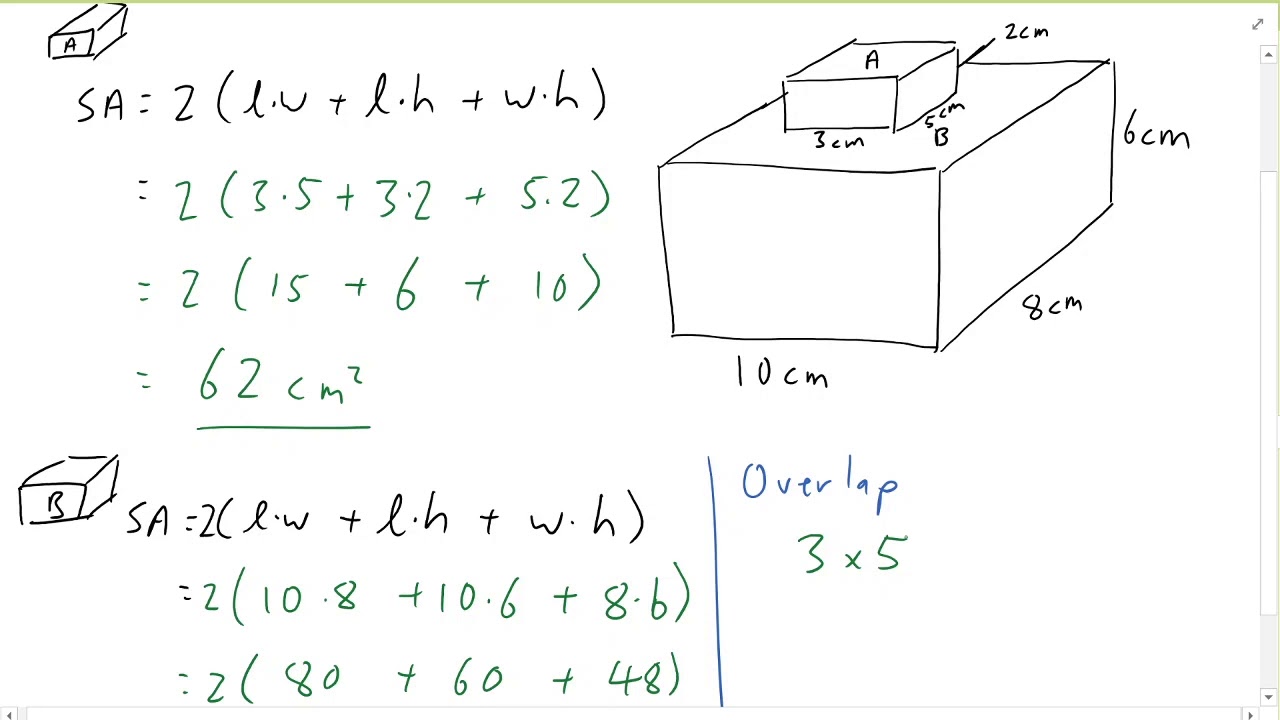 A
SA = 2 ( l·w + l·h + w·h )
= 2 ( 3·5 + 3·2 + 5.2 )
= 2 ( 15 + 6 + 10 )
= 62 cm²
2cm
A
5cm
3cm
B
6cm
8cm
10cm
B
SA =2( l·w + l·h + w·h )
=2( 10·8 +10·6 + 8·6 )
=2( 80 + 60 + 48 )
Overlap
3 x 5